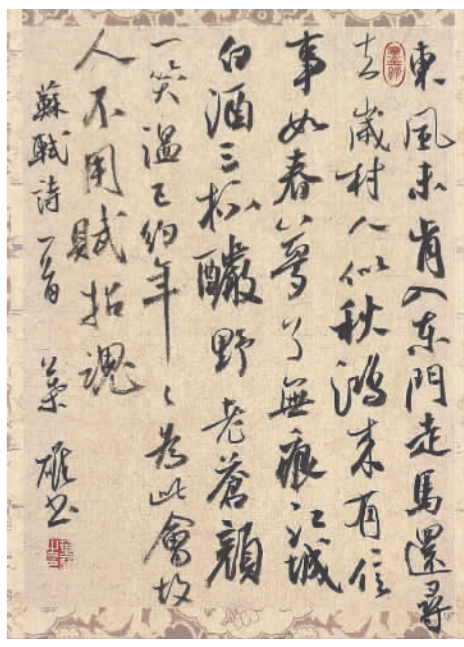 東風未肯入東門走馬還尋
去歲村人似秋鴻來有信
事如春夢了無痕江城
白酒三杯釅野老蒼顏
一笑溫已約年々為此會故
人不用賦招魂
蘇軾詩一首
雄書